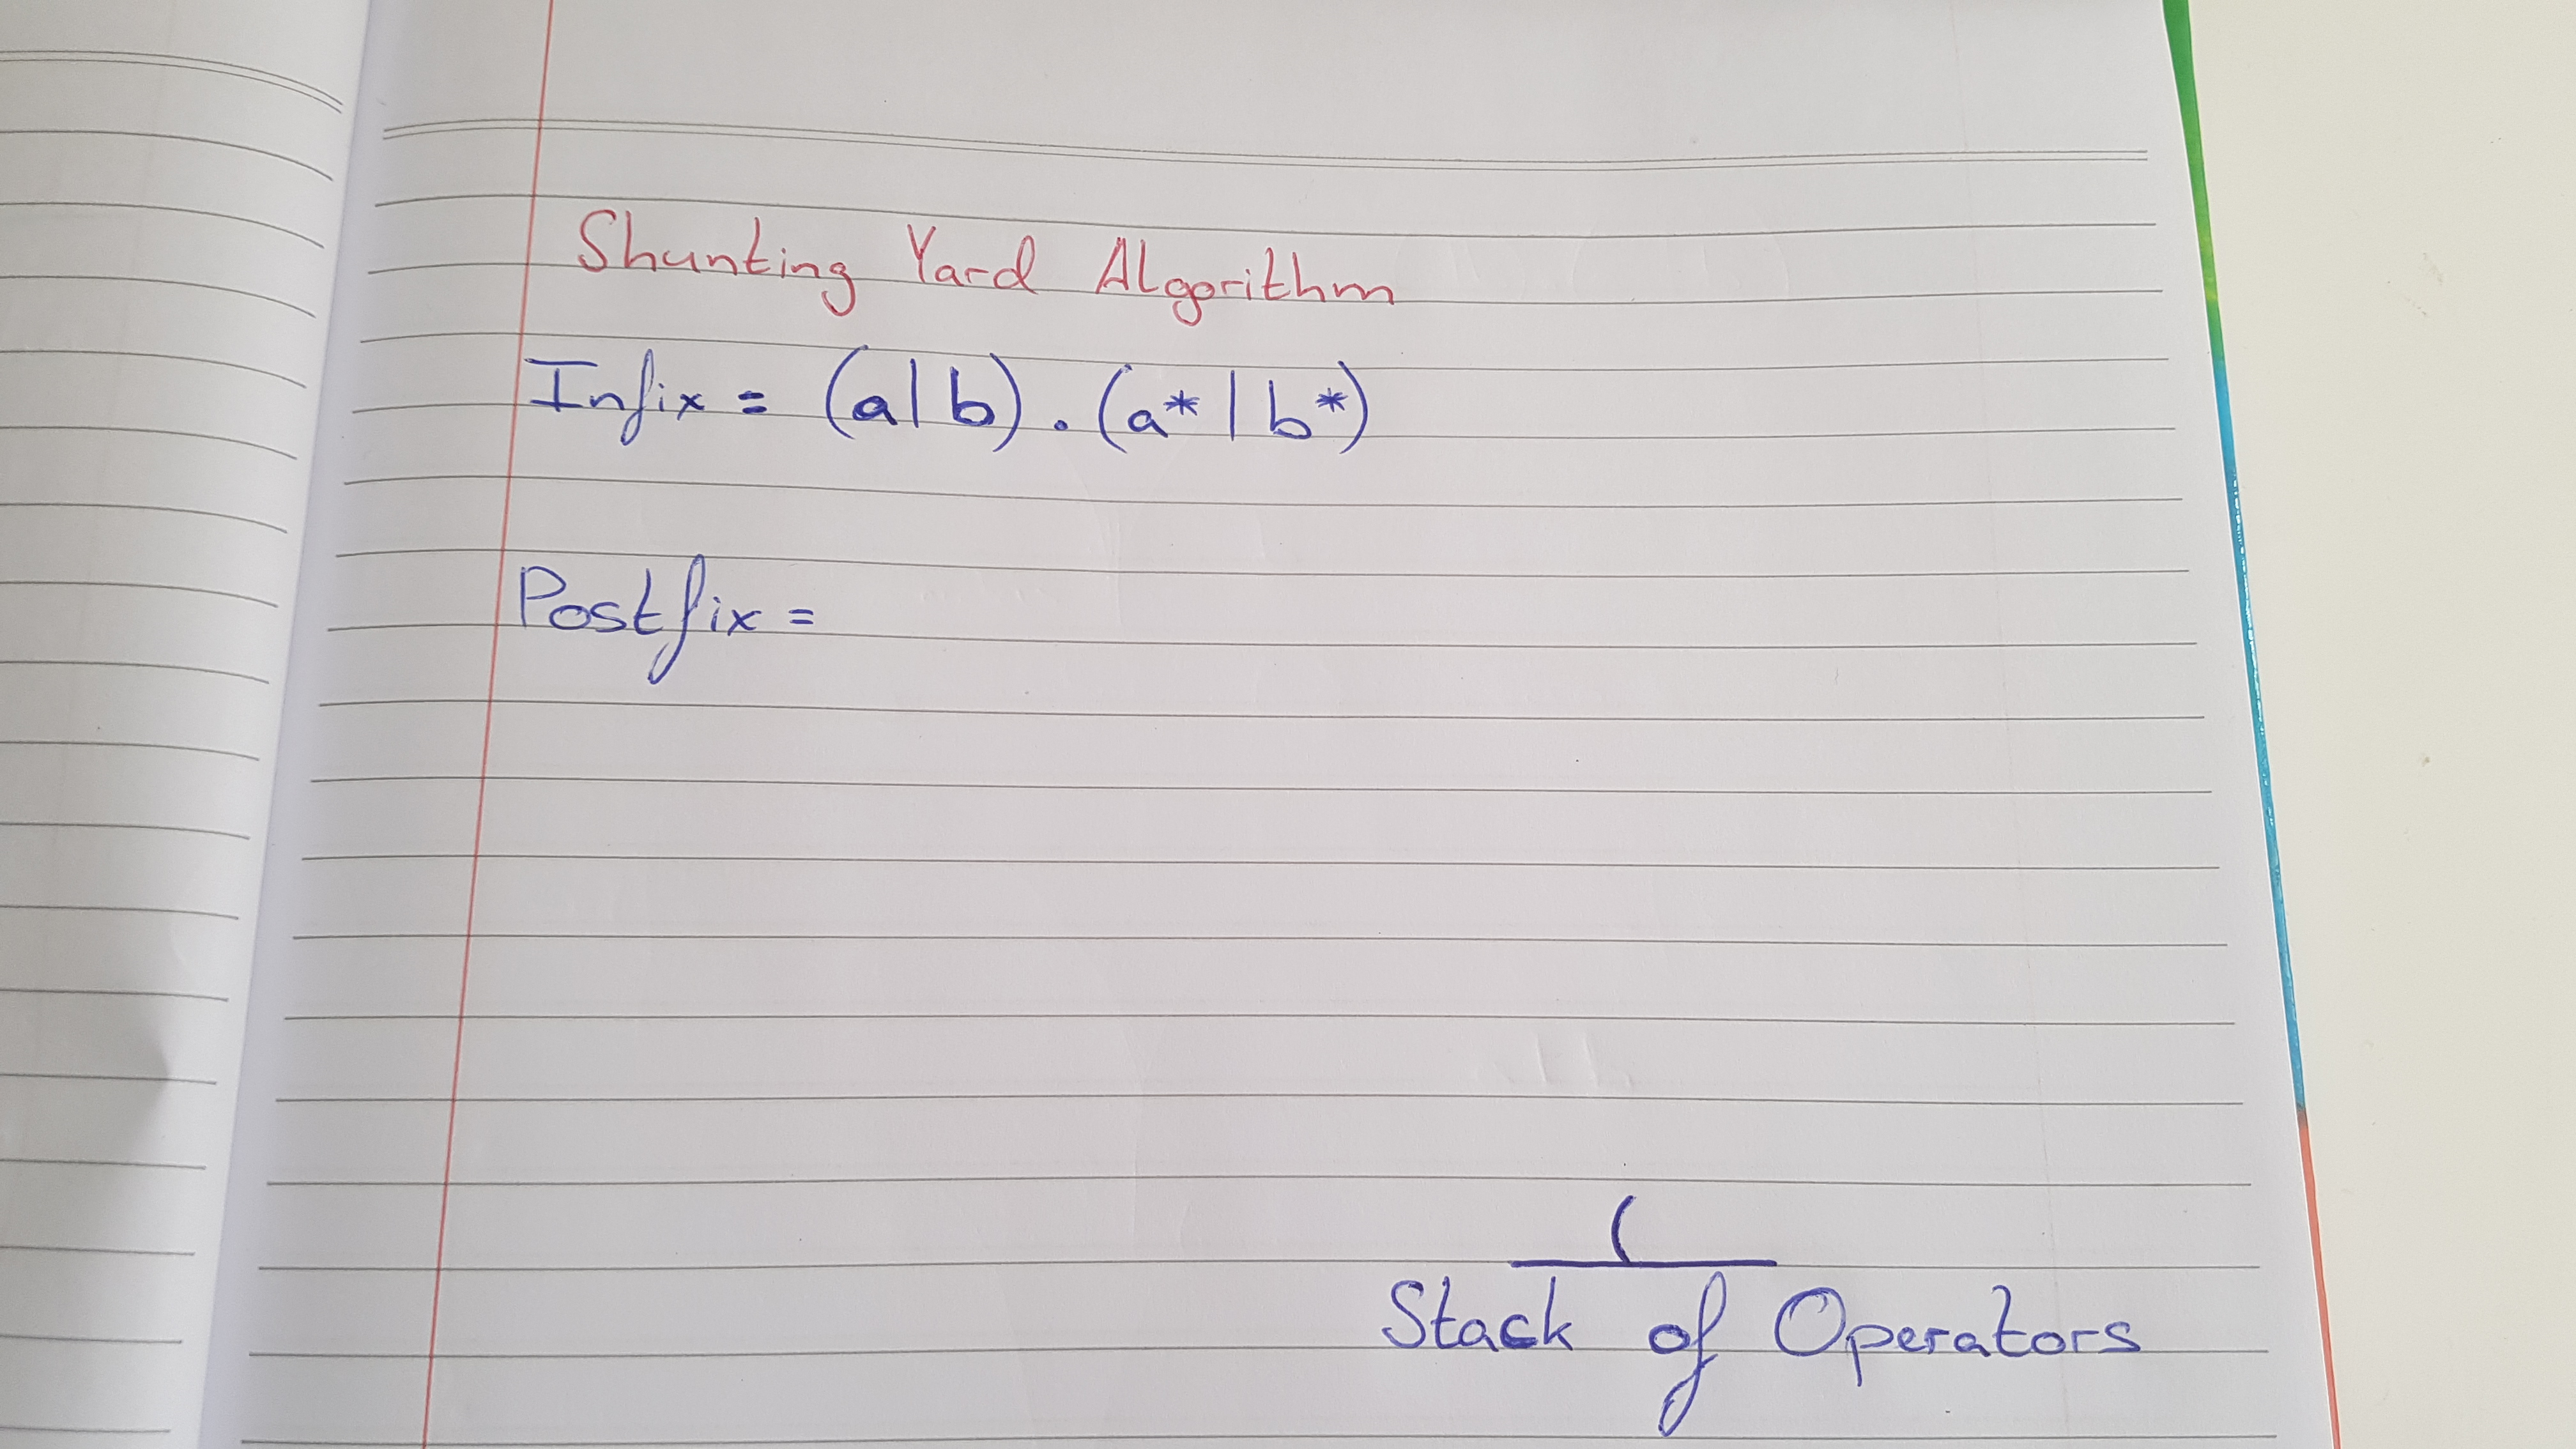 Shunting Yard Algorithm
Infix = (a|b).(a*|b*)
Postfix =
(
Stack of Operators